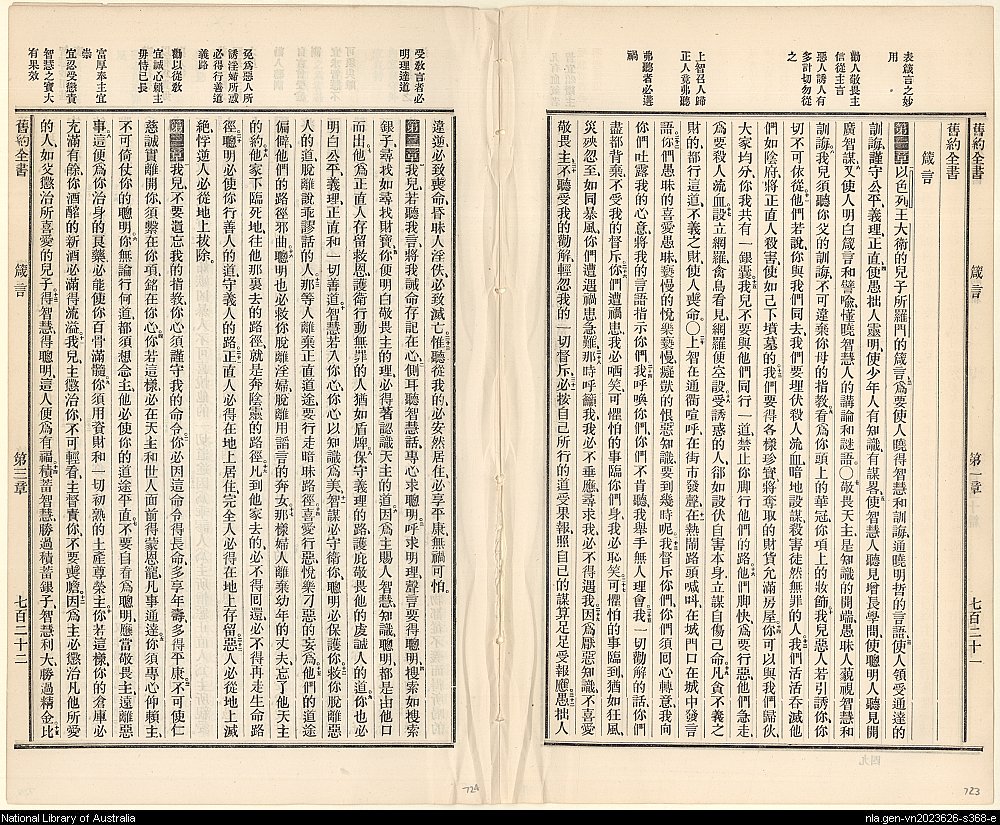 舊約全書
箴言
第一章
七百二十一
表箴言之妙
用
勸人敬畏主
信從主言
惡人誘人有
多計切勿從
之
上智召人歸
正人竟弗聽
弗聽者必遘
禍
舊約全書
箴言
第一章以色列王大衛的兒子所羅門的箴言爲要使人曉得智慧和訓誨通曉明哲的言語使人領受通達的
訓誨謹守公平義理正直便愚拙人靈明使少年人有知識有謀畧使智慧人聽見增長學問使聰明人聽見開
廣智謀又使人明白箴言和譬喻懂曉智慧人的講論和謎語〇敬畏天主是知識的開端愚昧人藐視智慧和
訓誨我兒須聽你父的訓誨不可違棄你母的指教看爲你頭上的華冠你項上的妝飾我兒惡人若引誘你你
切不可依從他們若說你與我們同去我們要埋伏殺人流血暗地設謀殺害徒然無罪的人我們活活吞滅他
們如陰府將正直人殺害使如己下墳墓的我們要得各樣珍寶將奪取的財貨充滿房屋你可以與我們歸伙
大家均分你我共有一銀囊我兒不要與他們同行一道禁止你脚行他們的路他們脚快爲要行惡他們急走
爲要殺人流血設立網羅禽鳥看見網羅便空設受誘惑的人卻如設伏自害本身立謀自傷己命凡貪不義之
財的都行這道不義之財使人喪命〇上智在通衢喧呼在街市發聲在熱鬧路頭喊叫在城門口在城中發言
語你們愚昧的喜愛愚昧褻慢的悅樂褻慢癡獃的恨惡知識要到幾時呢我督斥你們你們須囘心轉意我向
你們吐露我的心意將我的言語指示你們我呼喚你們你們不肯聽我舉手無人理會我一切勸解的話你們
盡都背棄不受我的督斥你們遭遇禍患我必哂笑可懼怕的事臨你們身我必恥笑可懼怕的事臨到猶如狂風
災殃忽至如同暴風你們遭遇禍患急難那時呼籲我我必不垂應尋求我必不得遇我因爲厭惡知識不喜愛
敬畏主不聽受我的勸解輕忽我的一切督斥必按自己所行的道受果報照自己的謀算足足受報應愚拙人
四九
723
受敎言者必
明理達道
免爲惡人所
誘淫婦所惑
必得行善道
義路
勸以從敎
宜誠心賴主
毋恃已長
富厚奉主宜
崇
宜忍受懲責
智慧之寶大
有果效
違逆必致喪命昏昧人淫佚必致滅亡惟聽從我的必安然居住必享平康無禍可怕
第二章我兒若聽我言將我誡命存記在心側耳聽智慧話專心求聰明呼求明理聲言要得聰明搜索如搜索
銀子尋求如尋找財寶你便明白敬畏主的理必得著認識天主的道因爲主賜人智慧知識聰明都是由他口
而出他爲正直人存留救恩護衞行動無罪的人猶如盾牌保守義理的路護庇敬畏他的虔誠人的道你也必
明白公平義理正直和一切善道智慧若入你心你心以知識爲美智謀必守衞你聰明必保護你救你脫離惡
人的道脫離說乖謬話的人那等人離棄正直道途要行走暗昧路徑喜愛行惡悅樂刁惡的妄爲他們的道途
偏僻他們的路徑邪曲聰明也必救你脫離淫婦脫離用謟言的奔女那樣婦人離棄幼年的丈夫忘了他天主
的約他家下臨死地往他那裏去的路徑就是奔陰靈的路徑凡到他家去的必不得囘還必不得再走生命路
徑聰明必使你行善人的道守義人的路正直人必得在地上居住完全人必得在地上存留惡人必從地上滅
絕悖逆人必從地上拔除
第三章我兒不要遺忘我的指教你心須謹守我的命令你必因這命令得長命多享年壽多得平康不可使仁
慈誠實離開你須繫在你項銘在你心你若這樣必在天主和世人面前得蒙恩寵凡事通達你須專心仰賴主
不可倚仗你的聰明你無論行何道都須想念主他必使你的道途平直不要自看爲聰明應當敬畏主遠離惡
事這便爲你治身的良藥必能使你百骨滿髓你須用資財和一切初熟的土產尊榮主你若這樣你的倉庫必
充滿有餘你酒醡的新酒必滿得流溢我兒主懲治你不可輕看主督責你不要喪膽因爲主必懲治凡他所愛
的人如父懲治所喜愛的兒子得智慧得聰明這人便爲有福積蓄智慧勝過積蓄銀子智慧利大勝過精金比
舊約全書
箴言
第三章
七百二十二
724
National Library of Australia
nla.gen-vn2023626-s368-e